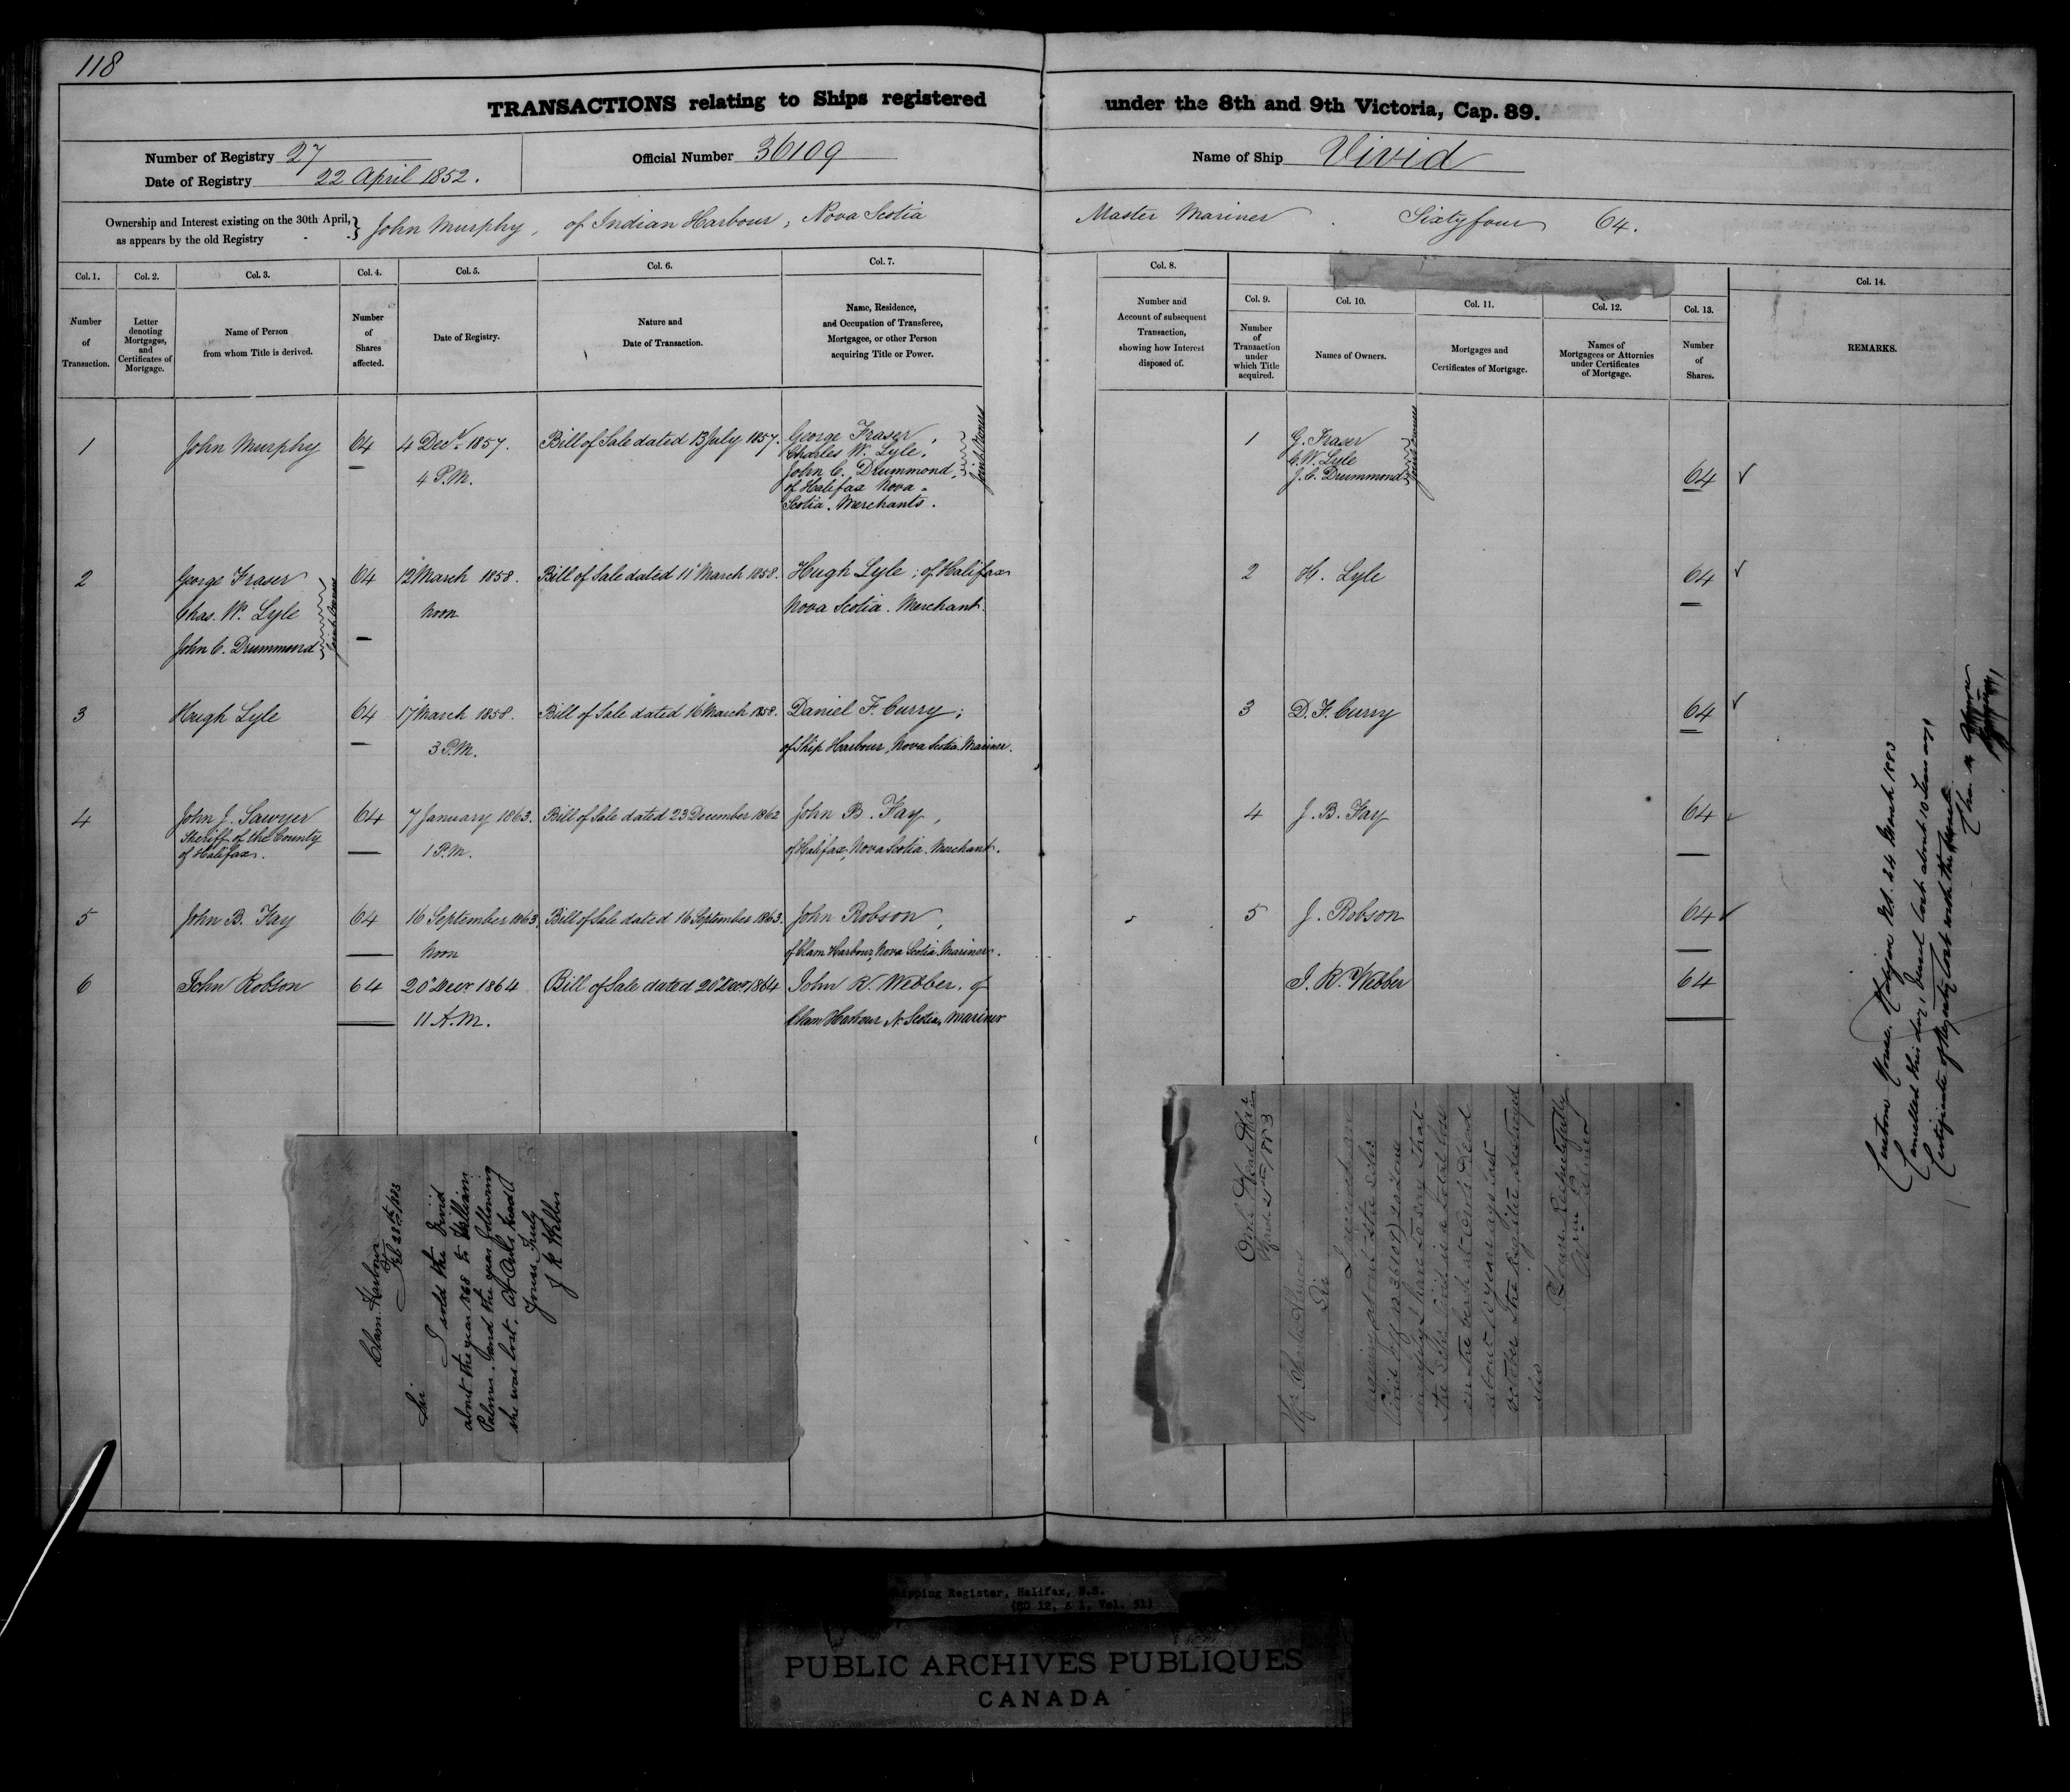 118
TRANSACTIONS relating to Ships registered under the 8th and 9th Victoria, Cap. 89.
Number of Registry 27
Date of Registry 22 April 1852.
Official Number 36109
Name of Ship Vivid
Ownership and Interest existing on the 30th April,
as appears by the old Registry
John Murphy, of Indian Harbour, Nova Scotia Master Mariner . Sixty four 64.
Col. 1. Col. 2. Col. 3. Col. 4. Col. 5. Col. 6. Col. 7.
Number of Transaction.
Letter denoting Mortgages, and Certificates of Mortgage.
Name of Person from whom Title is derived.
Number of Shares affected.
Date of Registry.
Nature and Date of Transaction.
Name, Residence, and Occupation of Transferee, Mortgagee, or other Person acquiring Title or Power.
1 John Murphy 64 4 Decr 1857. Bill of Sale dated 13 July 1857. George Fraser,
Charles W. Lyle,
4 P.M. John C. Drummond, Joint Owners
of Halifax Nova
Scotia. Merchants.
2 George Fraser 64 12 March 1858. Bill of Sale dated 11 March 1858. Hugh Lyle; of Halifax
Chas. W. Lyle Noon Nova Scotia. Merchant.
John C. Drummond Joint Owners
3 Hugh Lyle 64 17 March 1858. Bill of Sale dated 16 March 1858. Daniel F. Curry;
3 P.M. of Ship Harbour, Nova Scotia. Mariner.
4 John J. Sawyer 64 7 January 1863. Bill of Sale dated 23 December 1862 John B. Fay,
Sheriff of the County
of Halifax. 1 P.M. of Halifax, Nova Scotia. Merchant.
5 John B. Fay 64 16 September 1863. Bill of Sale dated 16 September 1863. John Robson,
Noon of Clam Harbour, Nova Scotia. Mariner.
6 John Robson 64 20 Decr 1864 Bill of Sale dated 20 Decr 1864 John R. Webber. of
11 A.M. Clam Harbour N. Scotia, Mariner
Clam Harbour
Feb 28th 1883
Sir
I sold the Vivid
about the year 1868 to William
Palmer. and the year following
she was lost. At Owls head
Yours Truly
J R Webber
Col. 8. Col. 9. Col. 10. Col. 11. Col. 12. Col. 13. Col. 14.
Number and Account of subsequent Transaction, showing how Interest disposed of.
Number of Transaction under which Title acquired.
Names of Owners.
Mortgages and Certificates of Mortgage.
Names of Mortgagees or Attornies under Certificates of Mortgage.
Number of Shares.
REMARKS.
1 G. Fraser
C. W. Lyle
J. C. Drummond Joint Owners 64
2 H. Lyle 64
3 D. F. Curry 64
4 J. B. Fay 64
5 J. Robson 64
J. R. Webber 64
Owls Head Har
March 1883
Sir
I received
about the Schr
Vivid
in reply I have to say that
the Schr Vivid is a total loss
on the beach at Owls Head
about 10 years ago last
October The Register destroyed
also
Yours Respectfully
Wm Palmer
Custom House, Halifax N.S. 24 March 1883
Cancelled this day, Vessel lost about 10 Years ago
Certificate of Registry lost with the Vessel.
PUBLIC ARCHIVES PUBLIQUES
CANADA
Shipping Register, Halifax, N.S.
(RG 12, A 1, Vol. 51)